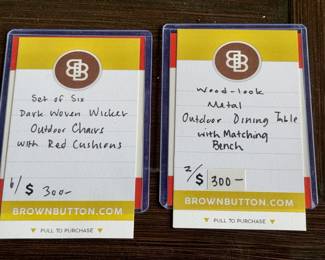 Set of Six
Dark Woven Wicker
Outdoor Chairs
with Red Cushions
6/$ 300-
BROWNBUTTON.COM
▼ PULL TO PURCHASE ▼
Wood-look
Metal
Outdoor Dining Table
with Matching
Bench
2/$ 300-
BROWNBUTTON.COM
▼ PULL TO PURCHASE ▼